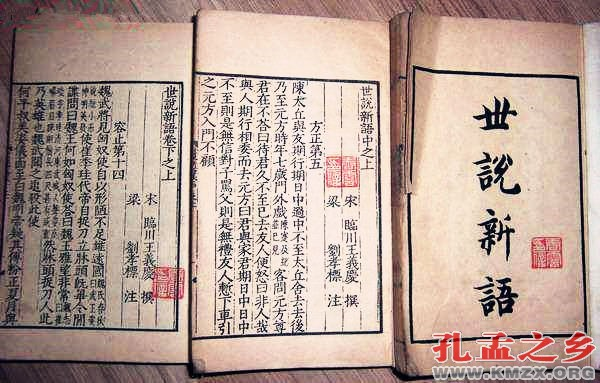 世說新語
世說新語中之上
方正第五
宋 臨川王義慶 撰
梁 劉孝標 注
陳太丘與友期行期日中過中不至太丘舍去去後
乃至元方時年七歲門外戲陳寔及紀並已見客問元方尊
君在不答曰待君久不至已去友人便怒曰非人哉
與人期行相委而去元方曰君與家君期日中日中
不至則是無信對子罵父則是無禮友人慚下車引
之元方入門不顧
世說新語卷下之上
容止第十四
宋 臨川王義慶 撰
梁 劉孝標 注
魏武將見匈奴使自以形陋不足雄遠國魏氏春秋
使崔季珪代帝自捉刀立牀頭既畢令間
諜問曰魏王何如匈奴使答曰魏王雅望非常
然牀頭捉刀人此
乃英雄也魏武聞之追殺此使
何平叔美姿儀面至白魏明帝疑其傅粉正夏月與
孔孟之乡
www.KMZX.ORG